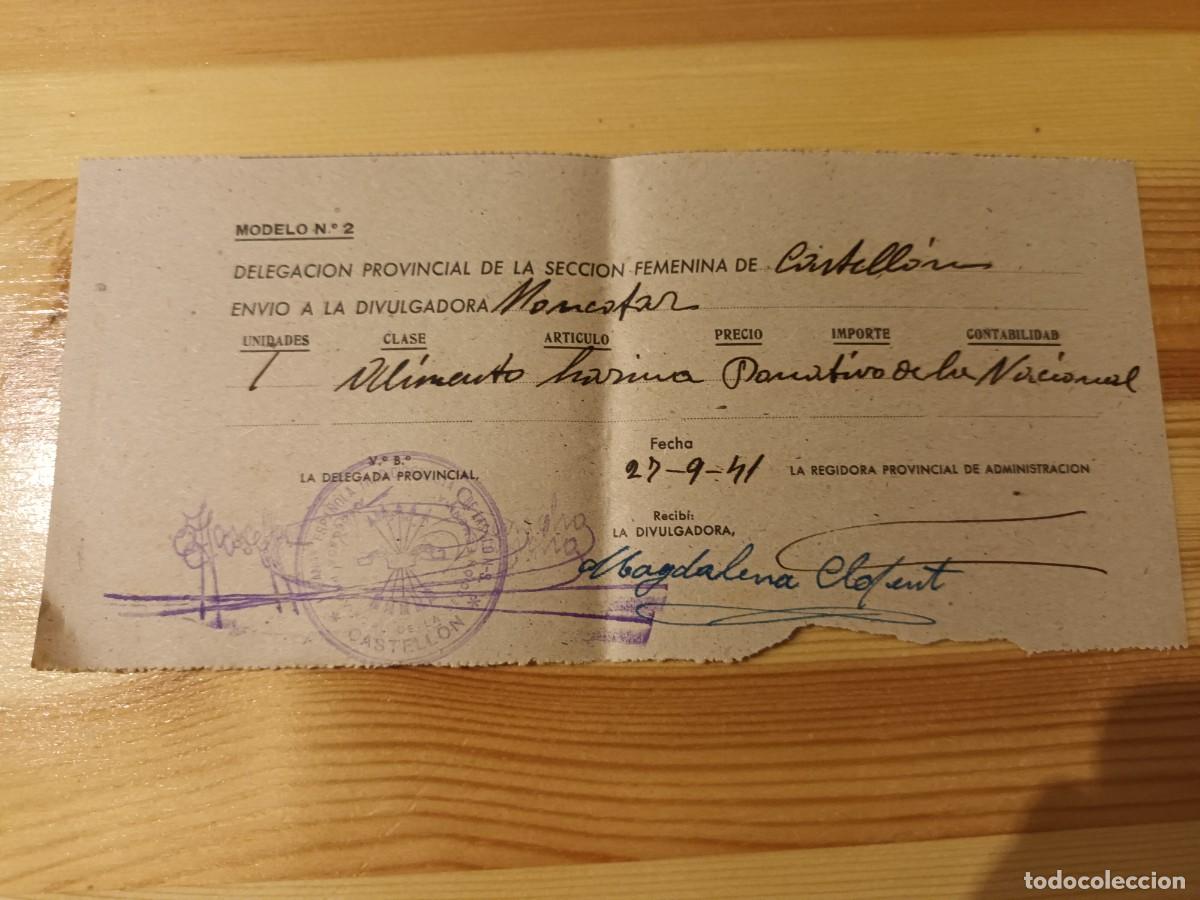 MODELO N.º 2
DELEGACION PROVINCIAL DE LA SECCION FEMENINA DE Castellón
ENVIO A LA DIVULGADORA Moncofar
UNIDADES CLASE ARTICULO PRECIO IMPORTE CONTABILIDAD
1 Alimento harina Donativo de la Nacional
Fecha
V.º B.º
27-9-41
LA DELEGADA PROVINCIAL,
LA REGIDORA PROVINCIAL DE ADMINISTRACION
Recibí:
LA DIVULGADORA,
Magdalena
DE LA
CASTELLÓN
todocoleccion